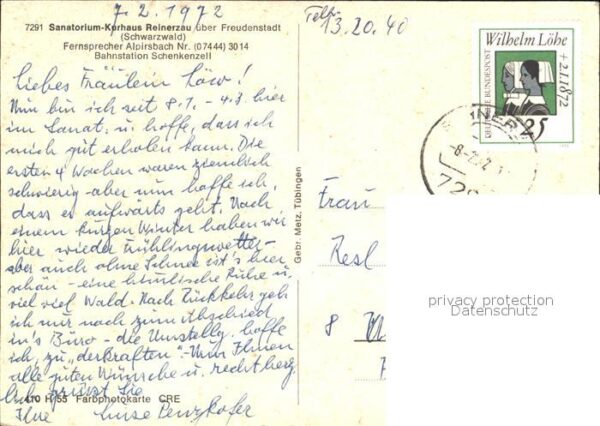 7.2.1972
Telf. 13.20.40
7291 Sanatorium-Kurhaus Reinerzau über Freudenstadt
(Schwarzwald)
Fernsprecher Alpirsbach Nr. (0 74 44) 3014
Bahnstation Schenkenzell
Liebes Fräulein Löw!
Nun bin ich seit 8.1. - 4.3. hier
im Sanat. u. hoffe, dass ich
mich gut erholen kann. Die
ersten 4 Wochen waren ziemlich
schwierig - aber nun hoffe ich,
dass es aufwärts geht. Nach
einem kurzen Winter haben wir
hier wieder Frühlingswetter -
aber auch ohne Schnee ist's hier
schön - eine himmlische Ruhe u.
viel viel Wald. Nach Rückkehr geh
ich nur noch zum Abschied
in's Büro - die Umstellg. hoffe
ich, zu "derkraften". Nun Ihnen
alle guten Wünsche u. recht herzl.
grüsst Sie
Ihre Luise
410 H 55 Farbphotokarte CRE
Gebr. Metz, Tübingen
Wilhelm Löhe
+ 2.1.1872
DEUTSCHE BUNDESPOST
25
INERZ
-8.2.72
729
Frau
Resl
8
privacy protection
Datenschutz